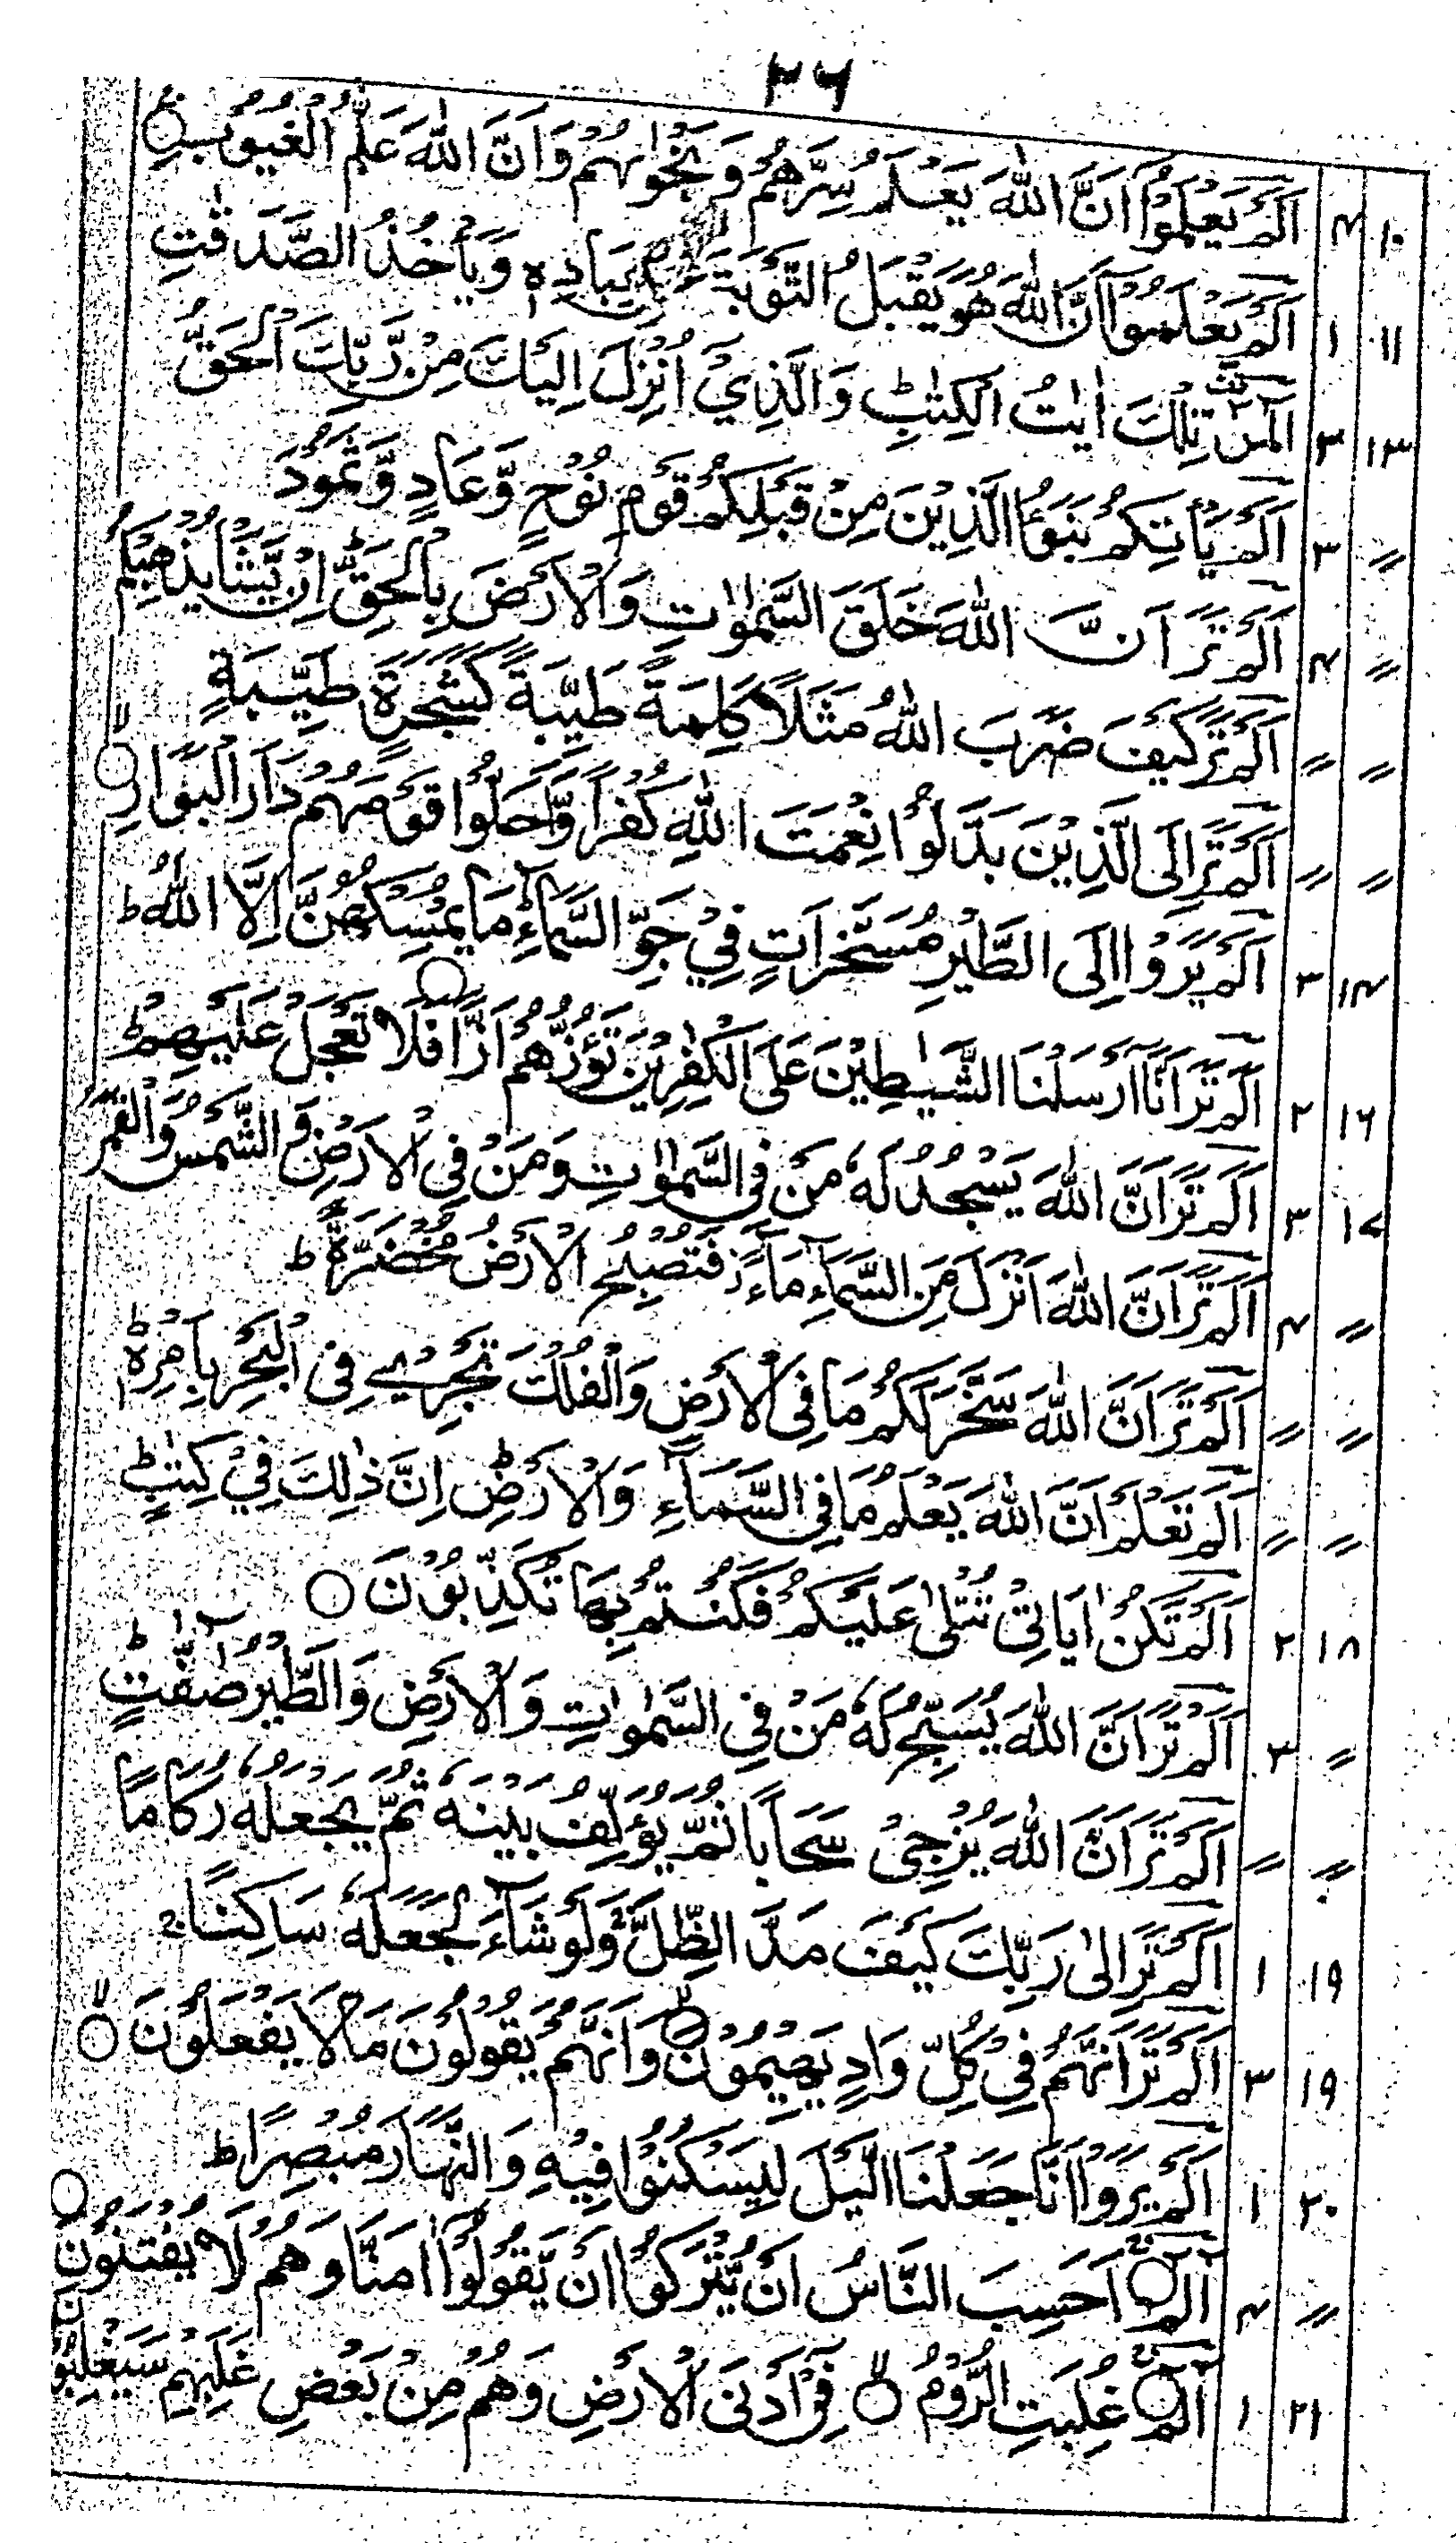 ۳۶
۱۰ ۴ اَلَمْ يَعْلَمُوْٓا اَنَّ اللّٰهَ يَعْلَمُ سِرَّهُمْ وَنَجْوٰىهُمْ وَاَنَّ اللّٰهَ عَلَّامُ الْغُيُوْبِ ○
۱۱ ۱ اَلَمْ يَعْلَمُوْٓا اَنَّ اللّٰهَ هُوَ يَقْبَلُ التَّوْبَةَ عَنْ عِبَادِهٖ وَيَاْخُذُ الصَّدَقٰتِ
۱۳ ۳ الٓمّٓرٰ تِلْكَ اٰيٰتُ الْكِتٰبِؕ وَالَّذِيْٓ اُنْزِلَ اِلَيْكَ مِنْ رَّبِّكَ الْحَقُّ
〃 ۳ اَلَمْ يَاْتِكُمْ نَبَؤُا الَّذِيْنَ مِنْ قَبْلِكُمْ قَوْمِ نُوْحٍ وَّعَادٍ وَّثَمُوْدَ
〃 ۴ اَلَمْ تَرَ اَنَّ اللّٰهَ خَلَقَ السَّمٰوٰتِ وَالْاَرْضَ بِالْحَقِّؕ اِنْ يَّشَاْ يُذْهِبْكُمْ
〃 〃 اَلَمْ تَرَ كَيْفَ ضَرَبَ اللّٰهُ مَثَلًا كَلِمَةً طَيِّبَةً كَشَجَرَةٍ طَيِّبَةٍ
〃 〃 اَلَمْ تَرَ اِلَى الَّذِيْنَ بَدَّلُوْا نِعْمَتَ اللّٰهِ كُفْرًا وَّاَحَلُّوْا قَوْمَهُمْ دَارَ الْبَوَارِ ○ۙ
۱۴ ۳ اَلَمْ يَرَوْا اِلَى الطَّيْرِ مُسَخَّرَاتٍ فِيْ جَوِّ السَّمَآءِؕ مَا يُمْسِكُهُنَّ اِلَّا اللّٰهُؕ
۱۶ ۲ اَلَمْ تَرَ اَنَّآ اَرْسَلْنَا الشَّيٰطِيْنَ عَلَى الْكٰفِرِيْنَ تَؤُزُّهُمْ اَزًّا ○ فَلَا تَعْجَلْ عَلَيْهِمْؕ
۱۷ ۳ اَلَمْ تَرَ اَنَّ اللّٰهَ يَسْجُدُ لَهٗ مَنْ فِى السَّمٰوٰتِ وَمَنْ فِى الْاَرْضِ وَالشَّمْسُ وَالْقَمَرُ
〃 ۴ اَلَمْ تَرَ اَنَّ اللّٰهَ اَنْزَلَ مِنَ السَّمَآءِ مَآءً فَتُصْبِحُ الْاَرْضُ مُخْضَرَّةًؕ
〃 〃 اَلَمْ تَرَ اَنَّ اللّٰهَ سَخَّرَ لَكُمْ مَا فِى الْاَرْضِ وَالْفُلْكَ تَجْرِيْ فِى الْبَحْرِ بِاَمْرِهٖؕ
〃 〃 اَلَمْ تَعْلَمْ اَنَّ اللّٰهَ يَعْلَمُ مَا فِى السَّمَآءِ وَالْاَرْضِؕ اِنَّ ذٰلِكَ فِيْ كِتٰبٍؕ
۱۸ ۲ اَلَمْ تَكُنْ اٰيَاتِىْ تُتْلٰى عَلَيْكُمْ فَكُنْتُمْ بِهَا تُكَذِّبُوْنَ ○
〃 ۳ اَلَمْ تَرَ اَنَّ اللّٰهَ يُسَبِّحُ لَهٗ مَنْ فِى السَّمٰوٰتِ وَالْاَرْضِ وَالطَّيْرُ صٰٓفّٰتٍؕ
〃 〃 اَلَمْ تَرَ اَنَّ اللّٰهَ يُزْجِىْ سَحَابًا ثُمَّ يُؤَلِّفُ بَيْنَهٗ ثُمَّ يَجْعَلُهٗ رُكَامًا
۱۹ ۱ اَلَمْ تَرَ اِلٰى رَبِّكَ كَيْفَ مَدَّ الظِّلَّۚ وَلَوْ شَآءَ لَجَعَلَهٗ سَاكِنًاۚ
۱۹ ۳ اَلَمْ تَرَ اَنَّهُمْ فِيْ كُلِّ وَادٍ يَّهِيْمُوْنَ ○ۙ وَاَنَّهُمْ يَقُوْلُوْنَ مَا لَا يَفْعَلُوْنَ ○ۙ
۲۰ ۱ اَلَمْ يَرَوْا اَنَّا جَعَلْنَا الَّيْلَ لِيَسْكُنُوْا فِيْهِ وَالنَّهَارَ مُبْصِرًاؕ
〃 ۴ الٓمّٓ ○ اَحَسِبَ النَّاسُ اَنْ يُّتْرَكُوْٓا اَنْ يَّقُوْلُوْٓا اٰمَنَّا وَهُمْ لَا يُفْتَنُوْنَ ○
۲۱ ۱ الٓمّٓ ○ غُلِبَتِ الرُّوْمُ ○ۙ فِيْٓ اَدْنَى الْاَرْضِ وَهُمْ مِنْ بَعْضِ غَلَبِهِمْ سَيَغْلِبُوْنَ